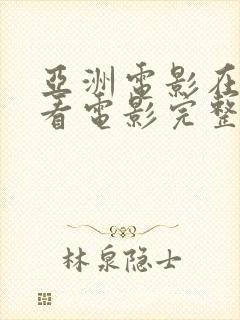 亞洲電影在
看電影完整
林泉隐士